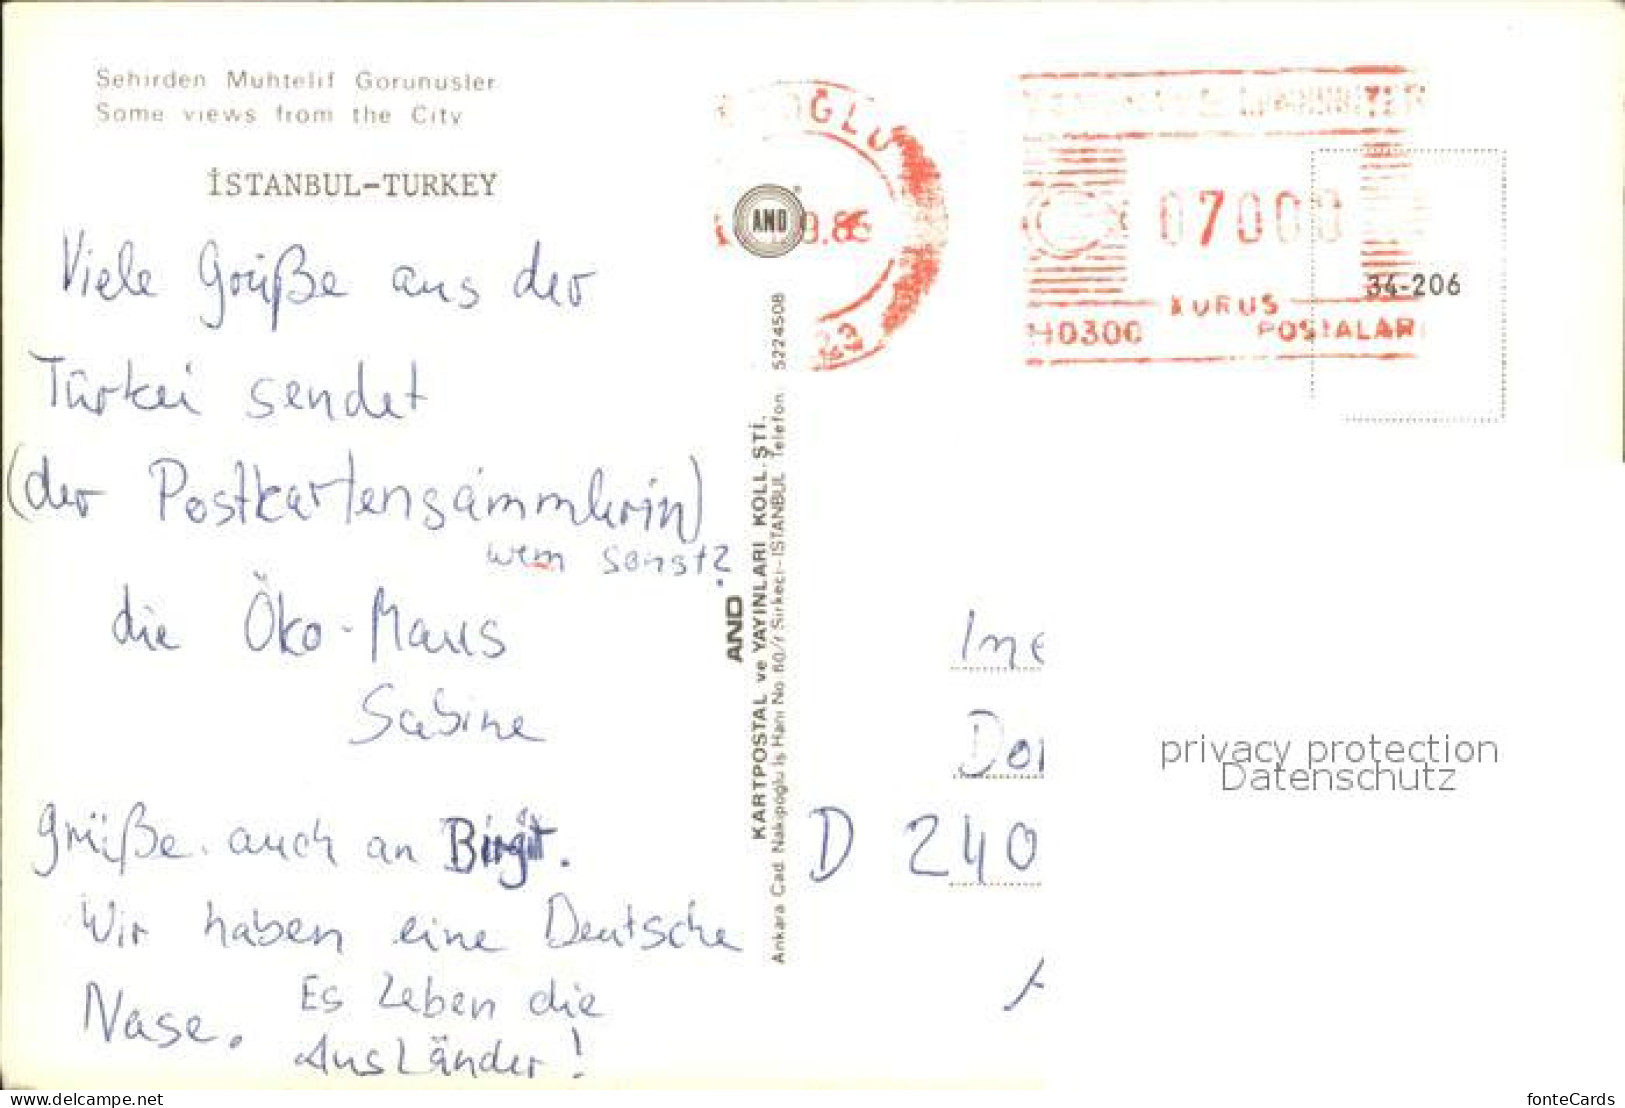 Sehirden Muhtelif Gorunusler
Some views from the City
İSTANBUL-TURKEY
Viele Grüße aus der
Türkei sendet
(der Postkartensammlerin)
wem sonst?
die Öko-Maus
Sabine
Grüße auch an Birgit.
Wir haben eine Deutsche
Nase.
Es Leben die
Ausländer!
AND
KARTPOSTAL ve YAYINLARI KOLL. ŞTİ.
Ankara Cad. Nakipoğlu İş Hanı No 60/ Sirkeci-İSTANBUL Telefon: 5224508
AND
9.86
07000
34-206
KURUS
H0300
POSTALARI
D 240
privacy protection
Datenschutz
www.delcampe.net
fonteCards